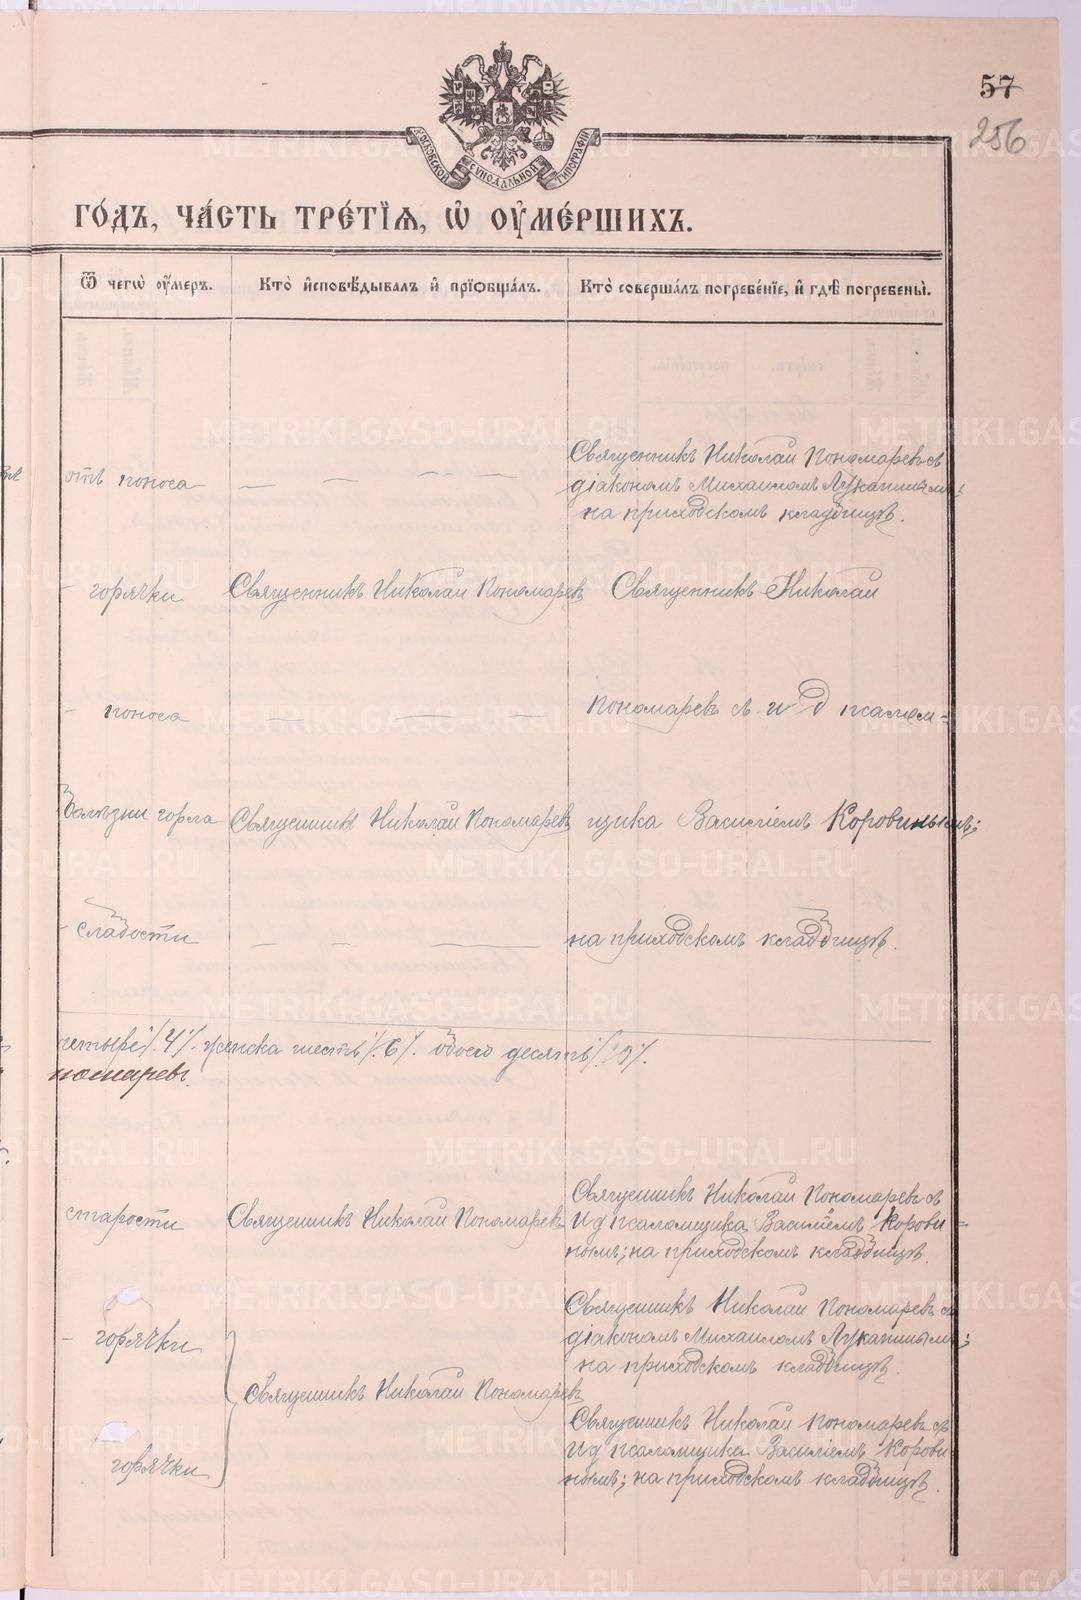 57
256
МОСКОВСКОЙ СУНОДАЛЬНОЙ ТИПОГРАФІИ
ГО́ДЪ, ЧА́СТЬ ТРЕ́ТЇѦ, Ѡ҆ ОУ҆МЕ́РШИХЪ.
Ѿ чегѡ̀ оу҆́меръ.
Кто̀ и҆сповѣ́дывалъ и҆ прїѡбща́лъ.
Кто̀ соверша́лъ погребе́нїе, и҆ гдѣ̀ погребены̀.
отъ поноса — — — — — —
Священникъ Николай Пономаревъ съ
діакономъ Михаиломъ Лукинымъ;
на приходскомъ кладбищѣ.
- горячки
Священникъ Николай Пономаревъ
Священникъ Николай
- поноса — — —
Пономаревъ съ и д псалом-
болѣзни горла
Священникъ Николай Пономаревъ
щика Василіемъ Коровинымъ;
- слабости — — —
на приходскомъ кладбищѣ.
четыре /.4/. женска шесть /.6/. обоего десять /.10/.
номаревъ.
старости
Священникъ Николай Пономаревъ
Священникъ Николай Пономаревъ съ
И д псаломщика Василіемъ Корови-
нымъ; на приходскомъ кладбищѣ.
- горячки
Священникъ Николай Пономаревъ съ
діакономъ Михаиломъ Лукинымъ;
на приходскомъ кладбищѣ.
Священникъ Николай Пономаревъ
горячки
Священникъ Николай Пономаревъ съ
И д псаломщика Василіемъ Корови-
нымъ; на приходскомъ кладбищѣ.
METRIKI.GASO-URAL.RU